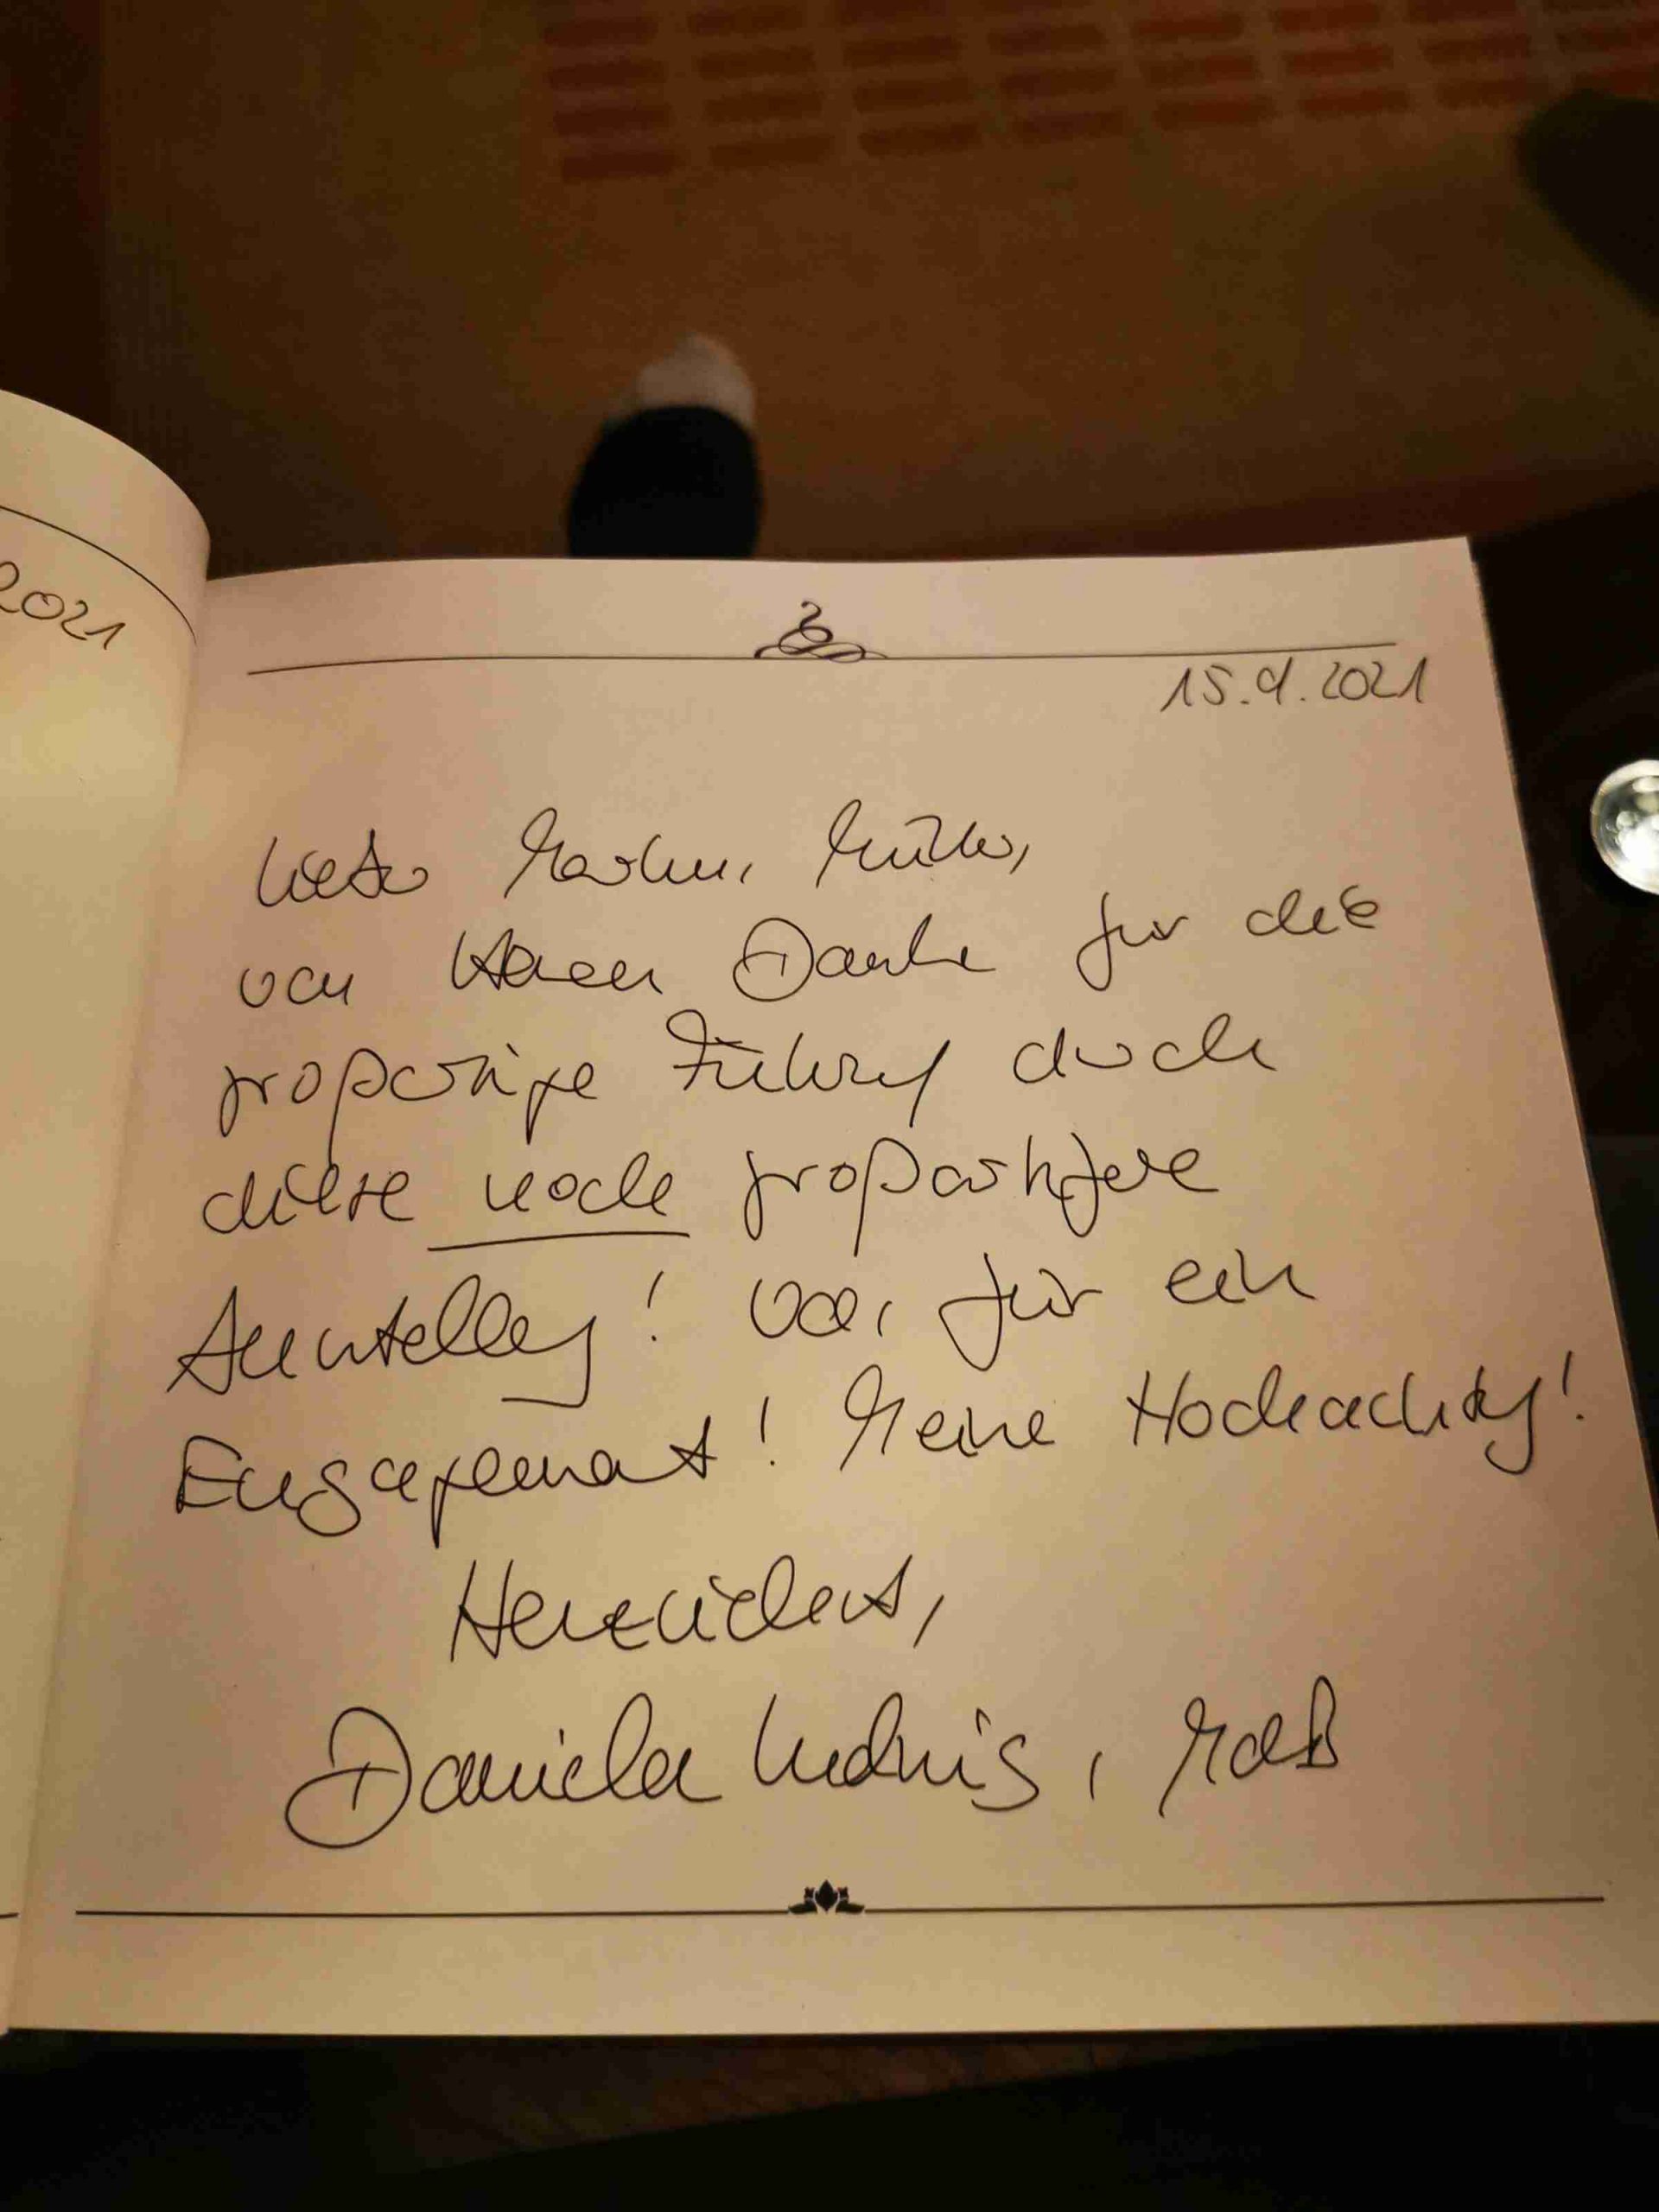 2021
15.9.2021
Lieber Markus Müller,
von Herzen Danke für die
großartige Führung durch
diese noch großartigere
Ausstellung! Was für ein
Engagement! Meine Hochachtung!
Herzlichst,
Daniela Ludwig, MdB